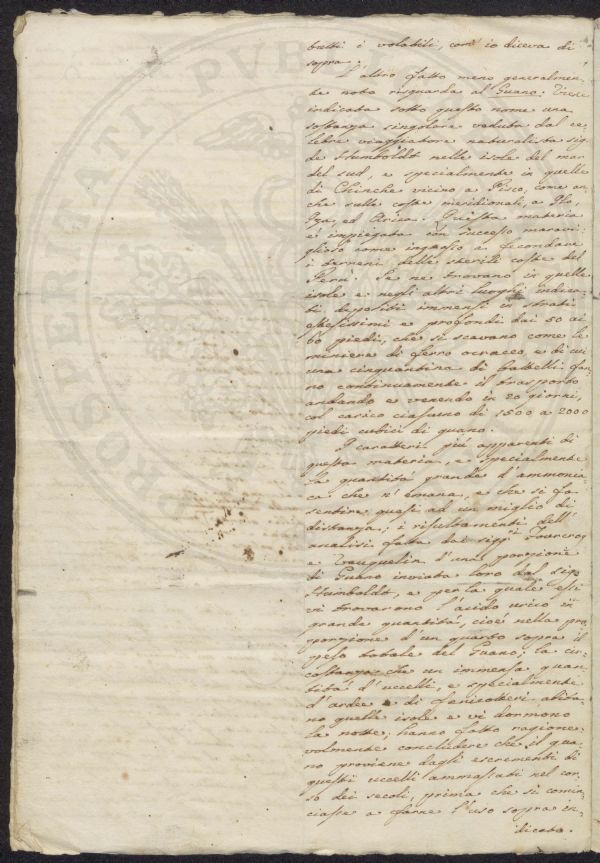 bretti i volatili, com' io diceva di
sopra.
L'altro fatto meno generalmen-
te noto risguarda al Guano. Viene
indicata sotto questo nome una
sostanza singolare veduta dal ce-
lebre viaggiatore naturalista sig.
de Humboldt nelle isole del mar
del sud, e specialmente in quelle
di Chinche vicino a Pisco, come an-
che sulle coste meridionali, a Ilo,
Iza, ed Arica. Questa materia
è impiegata con successo maravi-
glioso come ingrasso a fecondare
i terreni delle sterili coste del
Perù. Se ne trovano in quelle
isole e negli altri luoghi indica-
ti depositi immensi in strati
estesissimi e profondi dai 50 ai
60 piedi, che si scavano come le
miniere di ferro ocraceo, e di cui
una cinquantina di battelli fan-
no continuamente il trasporto
andando e venendo in 20 giorni,
col carico ciascuno di 1500 a 2000
piedi cubici di guano.
I caratteri più apparenti di
questa materia, e specialmente
la quantità grande d'ammonia-
ca che n'emana, e che si fa
sentire quasi ad un miglio di
distanza; i risultamenti dell'
analisi fatta dai sigg.ri Fourcroy
e Vauquelin d'una porzione
di Guano inviata loro dal sig.
Humboldt, e per la quale essi
vi trovarono l'acido urico in
grande quantità, cioè nella pro-
porzione d'un quarto sopra il
peso totale del Guano, la cir-
costanza che un immensa quan-
tità d'uccelli, e specialmente
d'ardee e di fenicotteri abita-
no quelle isole e vi dormono
la notte; hanno fatto ragione-
volmente concludere che il gua-
no proviene dagli escrementi di
questi uccelli ammassati nel cor-
so dei secoli, prima che si comin-
ciasse a farne l'uso sopra in-
dicato.
PROSPERITATI PUBLI